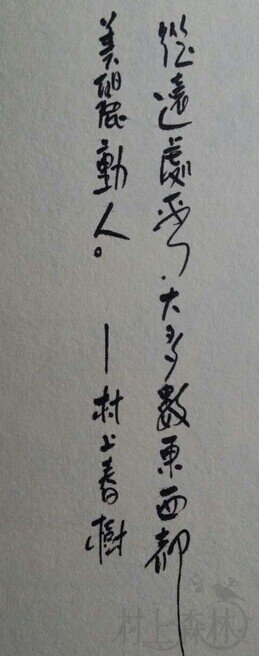 從遠處看,大多數東西都
美麗動人。 —村上春樹
村上森林